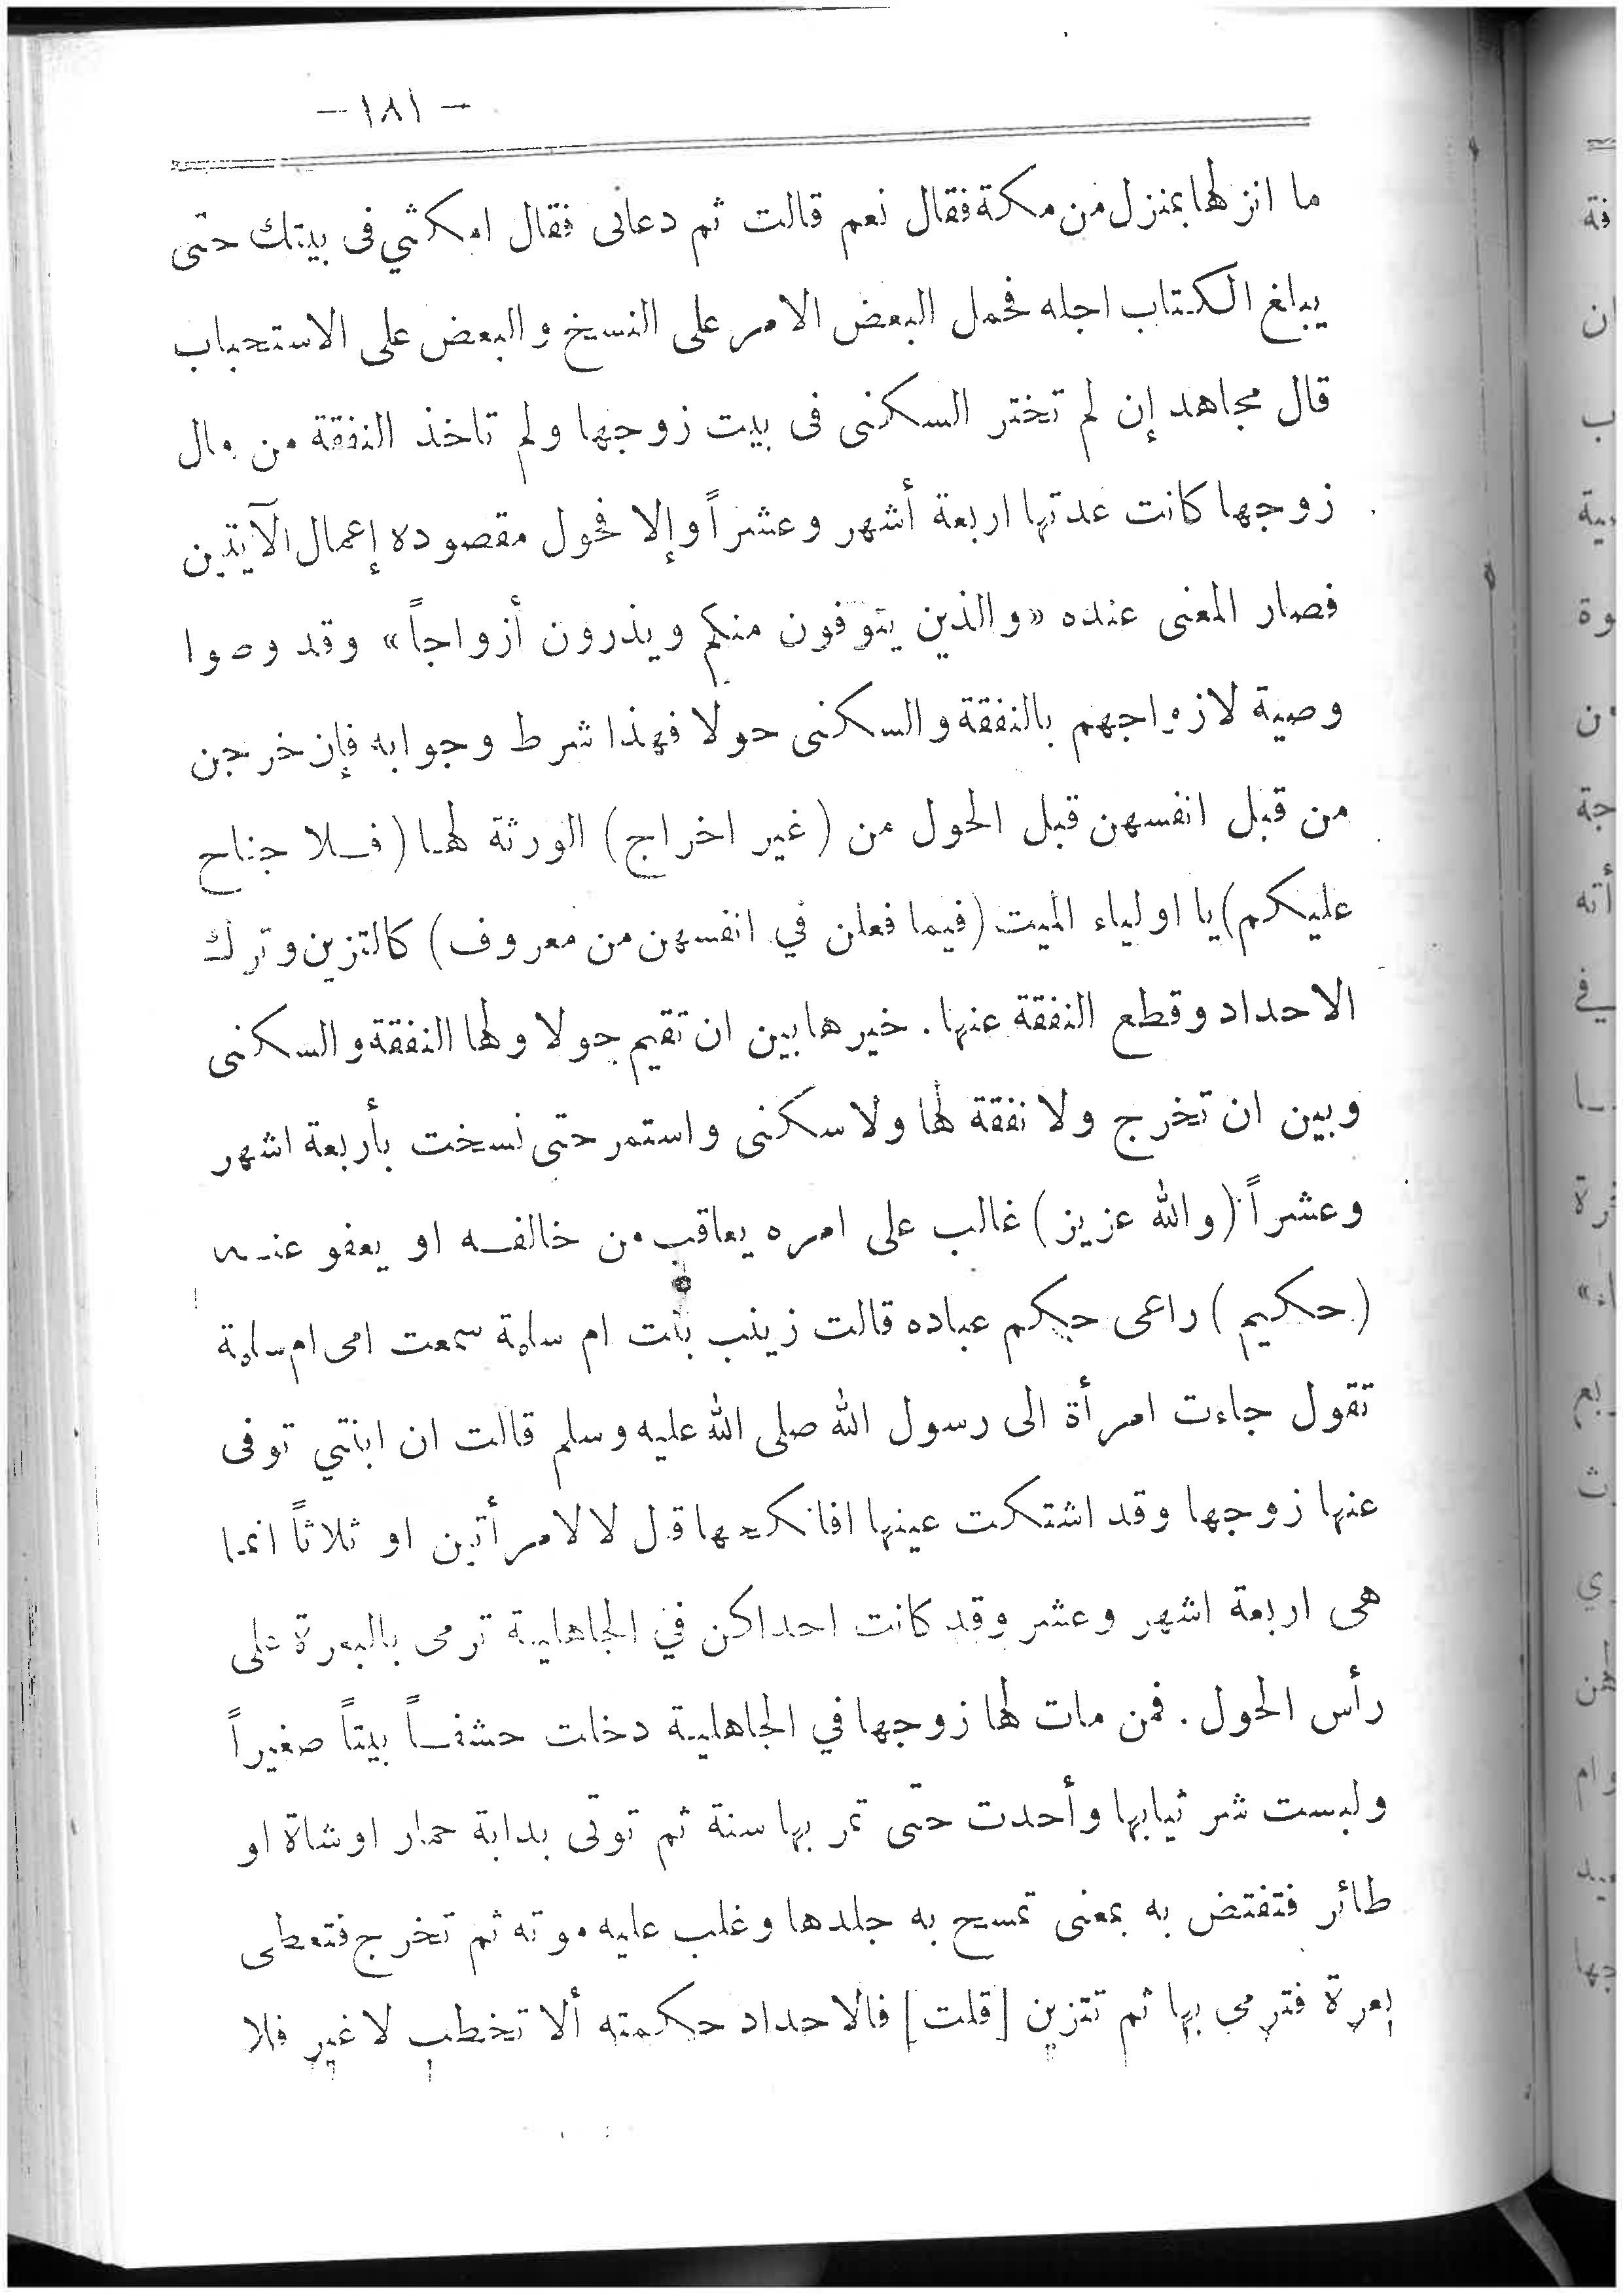 — ١٨١ —
ما انزلها بمنزل من مكة فقال نعم قالت ثم دعانى فقال امكثي فى بيتك حتى
يبلغ الكتاب اجله فحمل البعض الامر على النسخ والبعض على الاستحباب
قال مجاهد إن لم تختر السكنى فى بيت زوجها ولم تاخذ النفقة من مال
زوجها كانت عدتها اربعة أشهر وعشراً وإلا فحول مقصوده إعمال الآيتين
فصار المعنى عنده «والذين يتوفون منكم ويذرون أزواجاً» وقد وصوا
وصية لازواجهم بالنفقة والسكنى حولا فهذا شرط وجوابه فإن خرجن
من قبل انفسهن قبل الحول من (غير اخراج) الورثة لها (فلا جناح
عليكم) يا اولياء الميت (فيما فعلن في انفسهن من معروف) كالتزين وترك
الاحداد وقطع النفقة عنها. خيرها بين ان تقيم حولا ولها النفقة والسكنى
وبين ان تخرج ولا نفقة لها ولا سكنى واستمر حتى نسخت بأربعة اشهر
وعشراً (والله عزيز) غالب على امره يعاقب من خالفه او يعفو عنه
(حكيم) راعى حكم عباده قالت زينب بنت ام سلمة سمعت امى ام سلمة
تقول جاءت امرأة الى رسول الله صلى الله عليه وسلم قالت ان ابنتي توفى
عنها زوجها وقد اشتكت عينها افانكحها قل لا لامرأتين او ثلاثاً انما
هى اربعة اشهر وعشر وقد كانت احداكن في الجاهلية ترمى بالبعرة على
رأس الحول. فمن مات لها زوجها في الجاهلية دخلت حشفاً بيتاً صغيراً
ولبست شر ثيابها وأحدت حتى تمر بها سنة ثم توتى بدابة حمار او شاة او
طائر فتفتض به بمعنى تمسح به جلدها وغلب عليه موته ثم تخرج فتعطى
بعرة فترمى بها ثم تتزين [قلت] فالاحداد حكمته ألا تخطب لا غير فلا